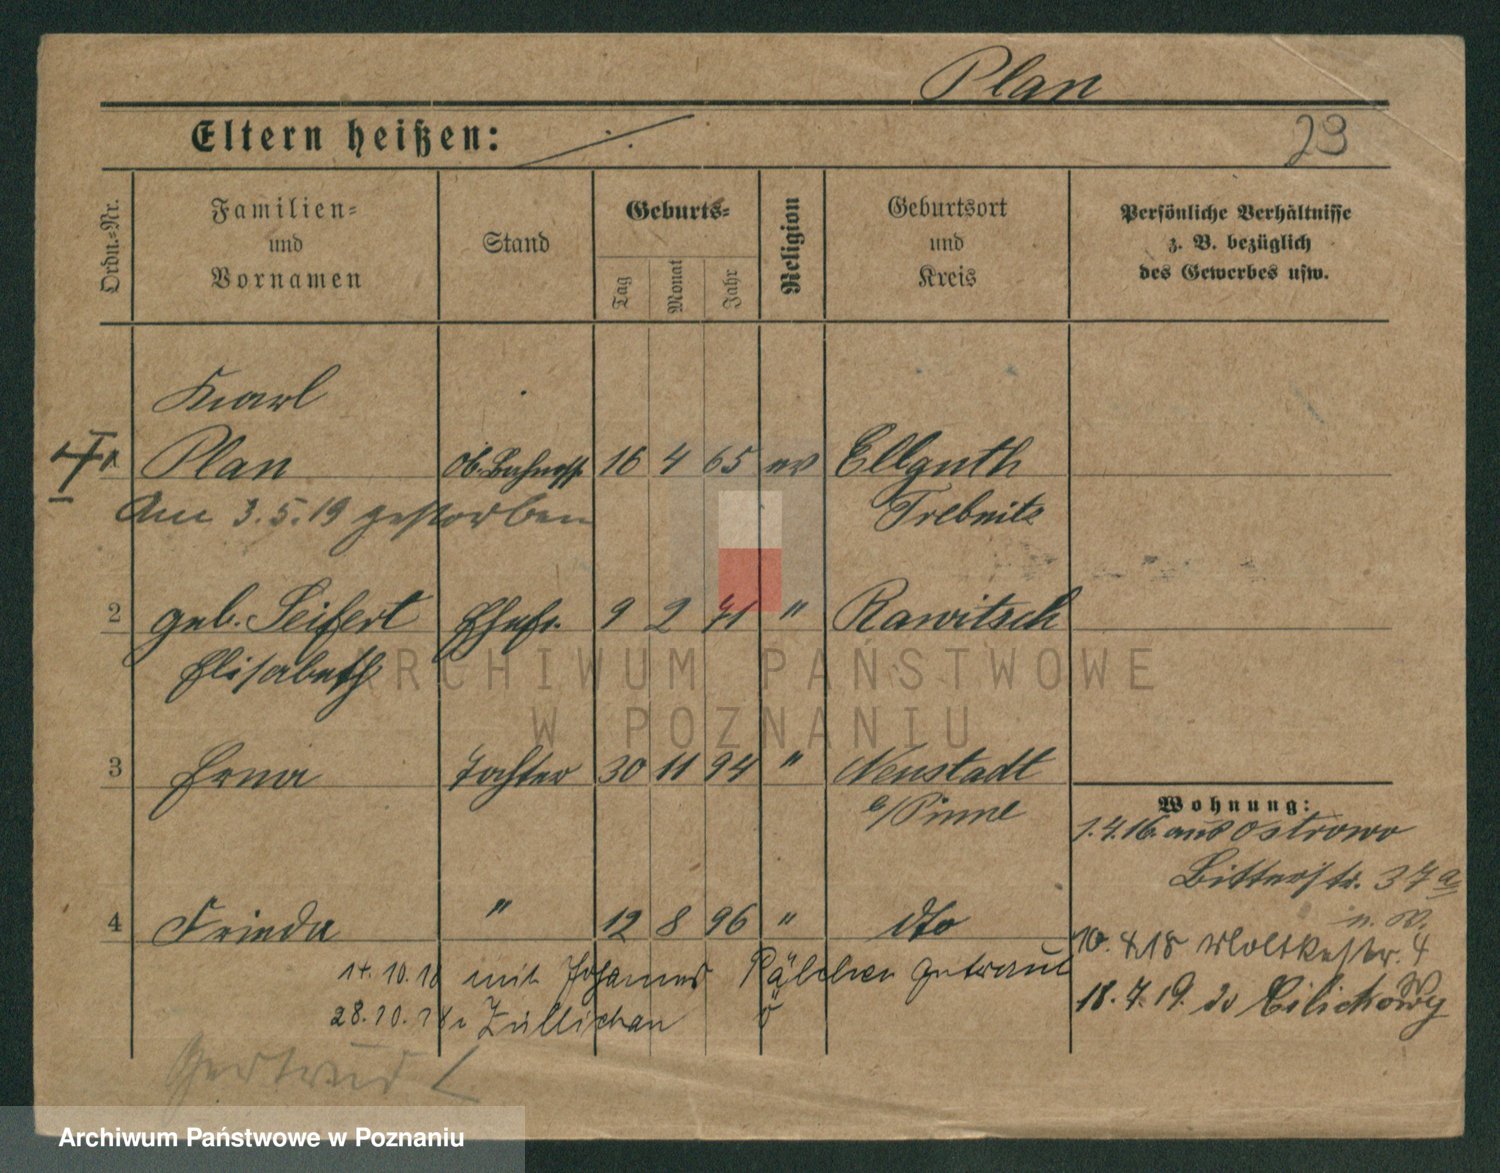 Plan
Eltern heißen: ./.
23
Ordn.=Nr.
Familien=
und
Vornamen
Stand
Geburts=
Tag
Monat
Jahr
Religion
Geburtsort
und
Kreis
Persönliche Verhältnisse
z. B. bezüglich
des Gewerbes usw.
Karl
Plan 16 4 65 ev Ellguth
Am 3.5.19 gestorben Trebnitz
2 geb. Seifert Ehefr. 9 2 71 " Rawitsch
Elisabeth
3 Erna Tochter 30 11 94 " Neustadt
b/Pinne
Wohnung:
1.4.16. aus Ostrowo
Bitterstr. 37a
n. W.
4 Frieda " 12 8 96 " dto
10.4.18 Moltkestr. 4
14.10.18 mit Johannes getraut
28.10.18 Züllichau
18.7.19.
Gertrud
ARCHIWUM PAŃSTWOWE
W POZNANIU
Archiwum Państwowe w Poznaniu